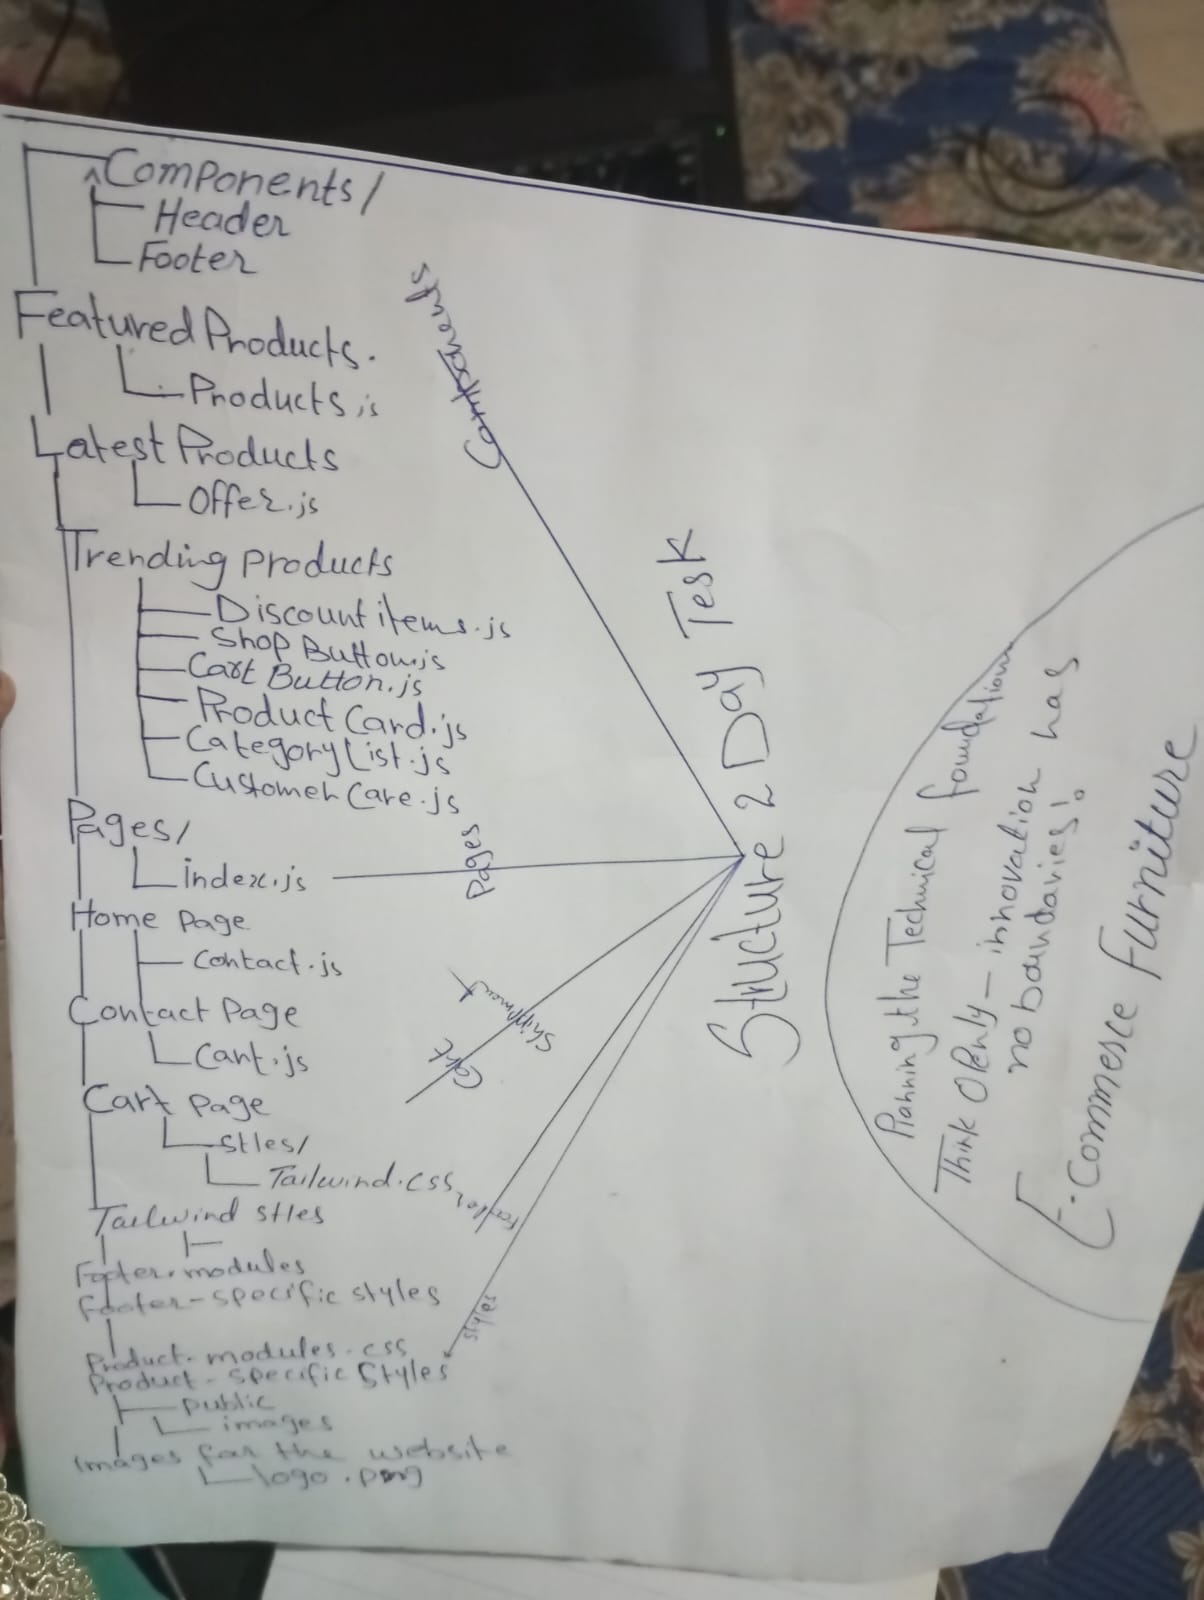 Components/
Header
Footer
Featured Products.
Products.js
Latest Products
Offer.js
Trending products
Discount items.js
Shop Button.js
Cart Button.js
Product Card.js
Category List.js
Customer Care.js
Pages/
index.js
Home Page
Contact.js
Contact Page
Cart.js
Cart page
Stles/
Tailwind.css
Tailwind stles
Footer.modules
footer-specific styles
Product.modules.css
Product-specific Styles
public
images
Images for the website
logo.png
Components
Pages
Shipment
Cart
styles
Structure 2 Day Tesk
Planning the Technical foundation
Think Openly - innovation has
no boundaries!
E-Commerce Furniture